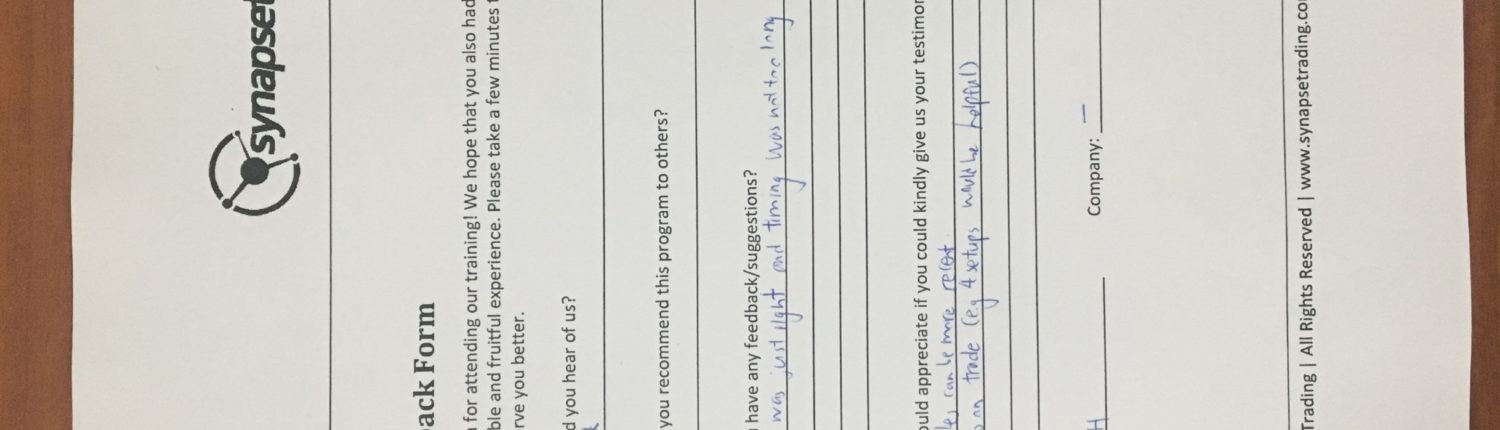 synapse
ack Form
for attending our training! We hope that you also had
ble and fruitful experience. Please take a few minutes
rve you better.
d you hear of us?
you recommend this program to others?
have any feedback/suggestions?
was just right and timing was not too long
ould appreciate if you could kindly give us your testimon
can be more recent.
on trade (e.g 4 setups would be helpful)
H Company: —
Trading | All Rights Reserved | www.synapsetrading.co